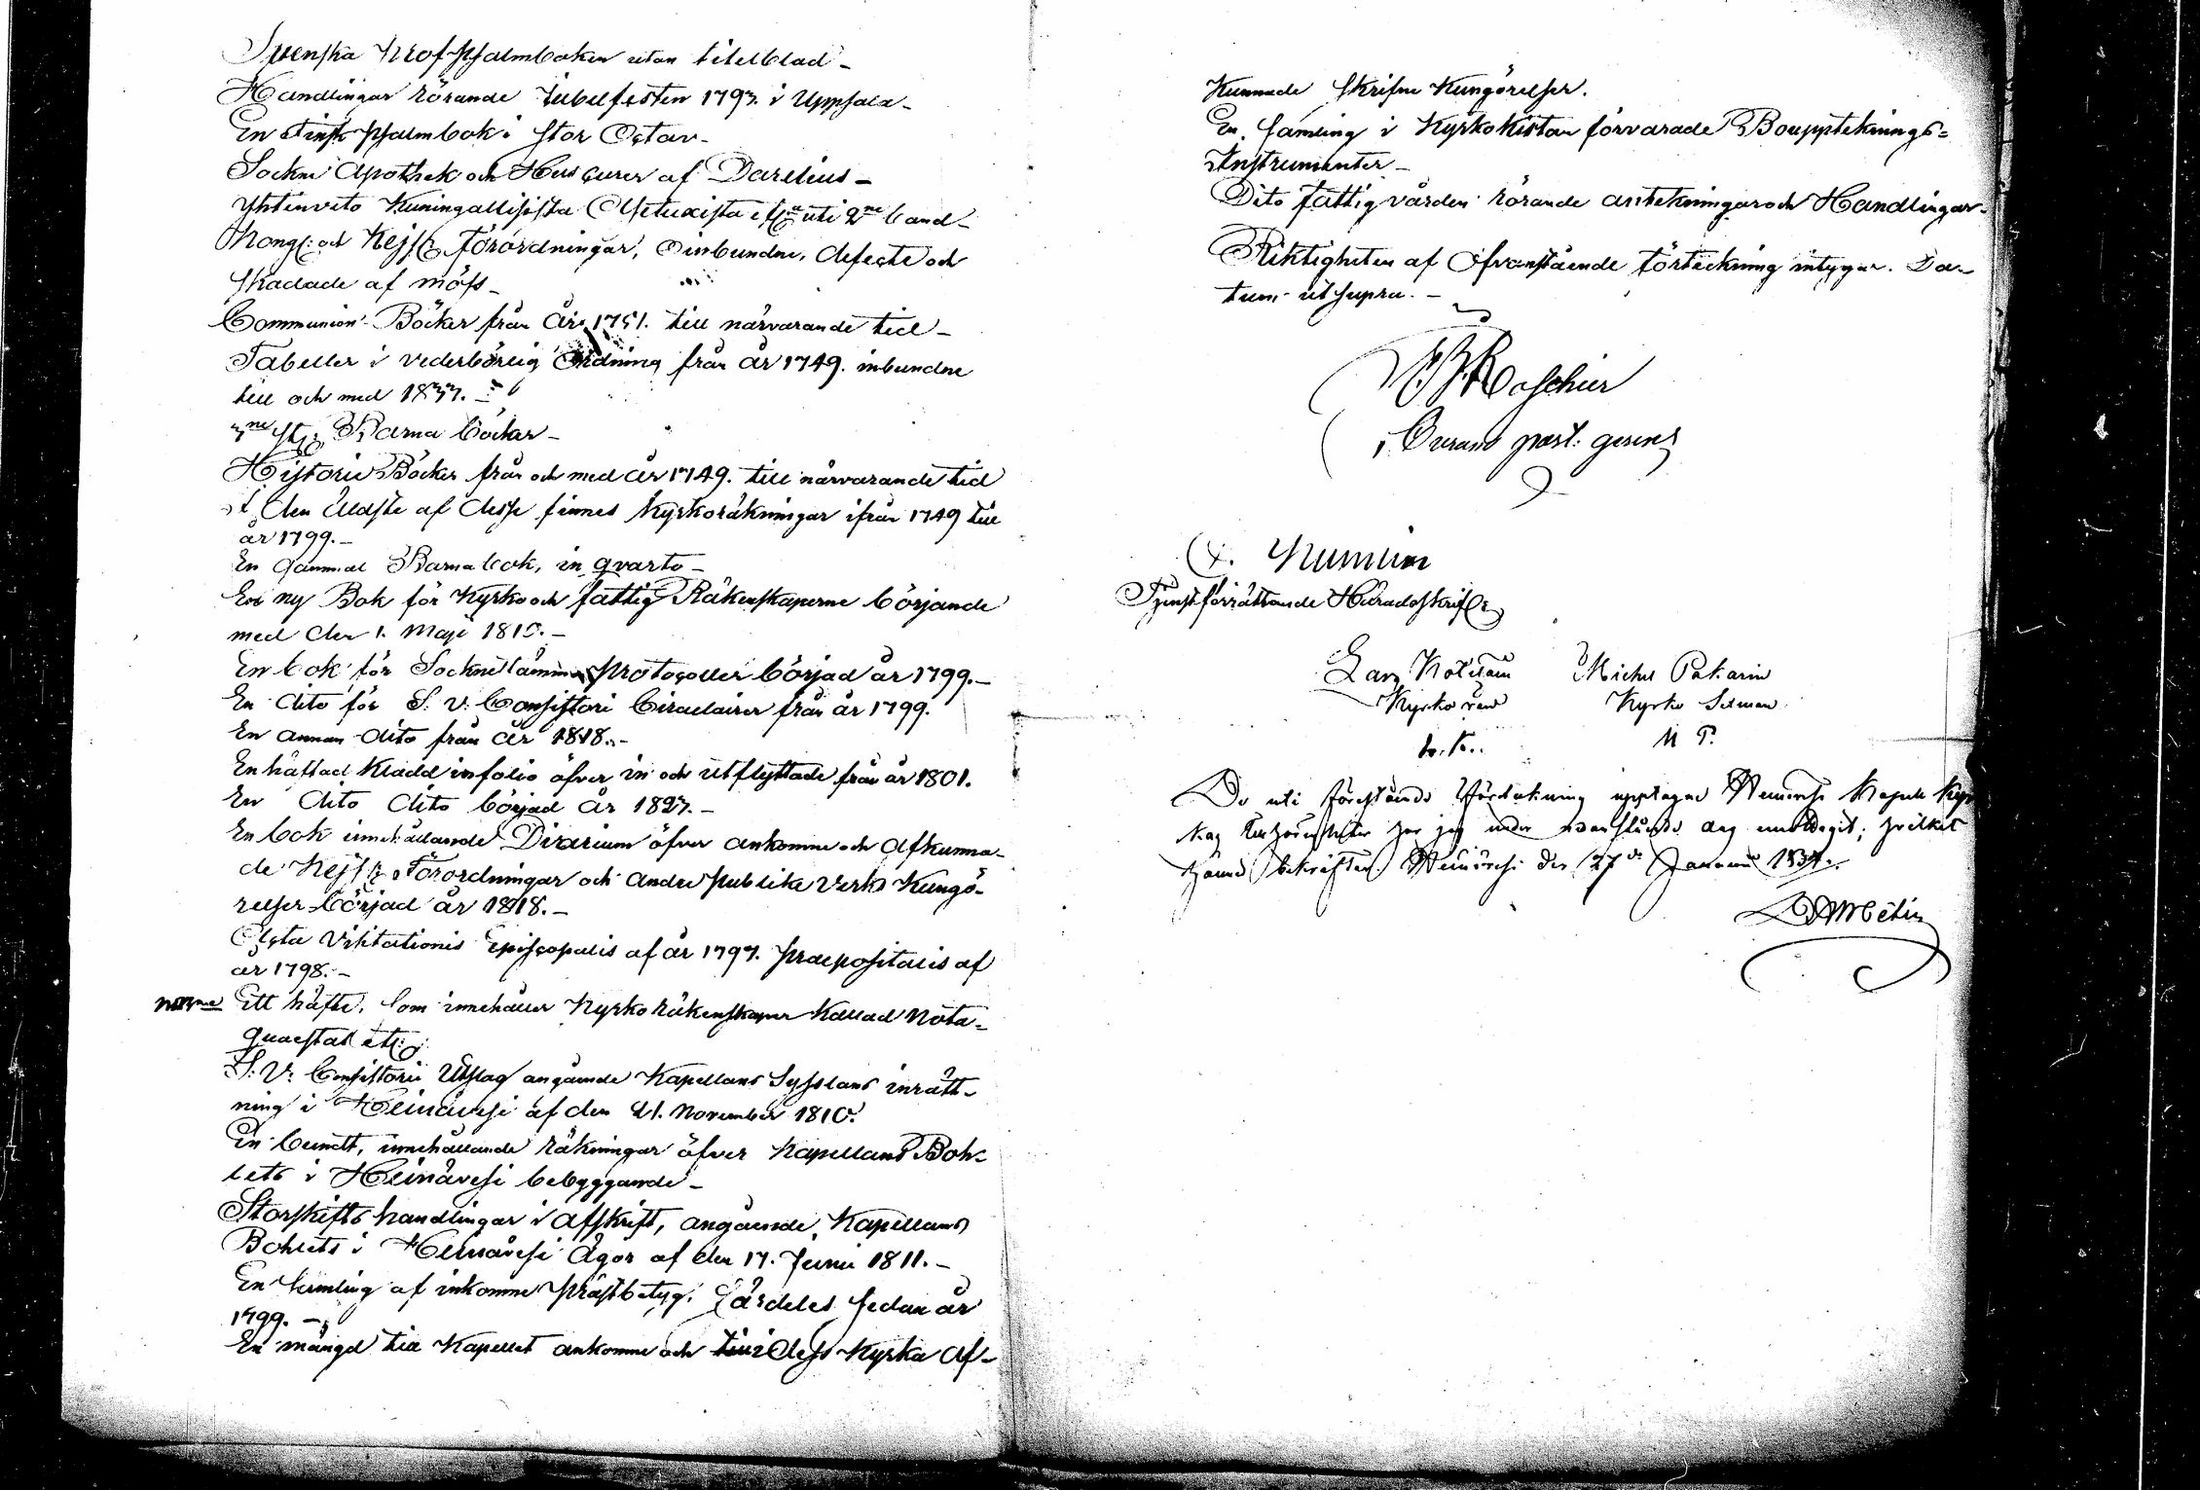 Svenska Prof Psalmboken utan titelblad -
Handlingar rörande Jubelfesten 1793 i Uppsala -
En Finsk Psalmbok i stor Octav -
Sockne Apothek och Huscurer af Darelius -
Yhteinveto Kuningallisista Asetuxista etc. uti 2ne band -
Kongl: och Kejs: Förordningar, oinbundne, defecte och
skadade af möss -
Communion-Böcker från år 1751. till närvarande tid -
Tabeller i vederbörlig ordning från år 1749. inbundne
till och med 1833. -
3ne st: Barna böcker -
Historie Böcker från och med år 1749. till närvarande tid
i den äldste af desse finnes Kyrkoräkningar ifrån 1749 till
år 1799. -
En gammal Barnabok, in qvarto -
En ny Bok för Kyrko och fattig Räkenskaperne börjande
med den 1. Maji 1810. -
En bok för Sockne Stämmo Protocoller börjad år 1799. -
En dito för S. V. Consistorii Circulairer från år 1799.
En annan dito från år 1818. -
En häftad Kladd in folio öfver in och utflyttade från år 1801.
En dito dito börjad år 1827. -
En bok innehållande Diarium öfver ankomne och afkunna-
de Kejs: Förordningar och andre publike Verks Kungö-
relser börjad år 1818. -
Acta Visitationis Episcopalis af år 1797. Praepositalis af
år 1798. -
Ett häfte, som innehåller Kyrko Räkenskaper Kallad Nota-
quaestat etc:
S: V: Consistorii Utslag angående Kapellans Sysslans inrätt-
ning i Heinävesi af den 21. November 1810.
En bundt, innehållande räkningar öfver Kapellans Boh-
lets i Heinävesi bebyggande -
Storskifts handlingar i afskrift, angående Kapellans
Bohlets i Heinävesi Ägor af den 17. Junii 1811. -
En Samling af inkomne Prästbetyg, särdeles sedan år
1799. -
En mängd till Kapellet ankomne och dess Kyrka af-
Kunnade skrifne Kungörelser.
En samling i Kyrkokistan förvarade Boupptecknings-
Instrumenter -
Dito fattigvården rörande anteckningar och Handlingar -
Riktigheten af ofvanstående förteckning intygar. Da-
tum ut supra. -
Roschier
Curam past: gerens
Tjenstförrättande Häradsskrif:
Lars
Michel Pakarin
Kyrkovärd
Kyrko Sexman
M P.
De uti förestående Förteckning upptagne Heinävesi Kapell Kyr
kas har jag under ofvanstående dag emottagit; hvilket
härmed bekräftas. Heinävesi den 27de Januarii 1834.